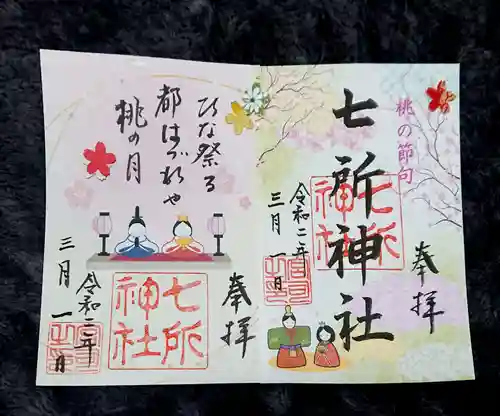 桃の節句
七所神社
奉拝
令和二年
三月一日
七所
神社
ひな祭る
都はづれや
桃の月
奉拝
七所
神社
令和二年
三月一日